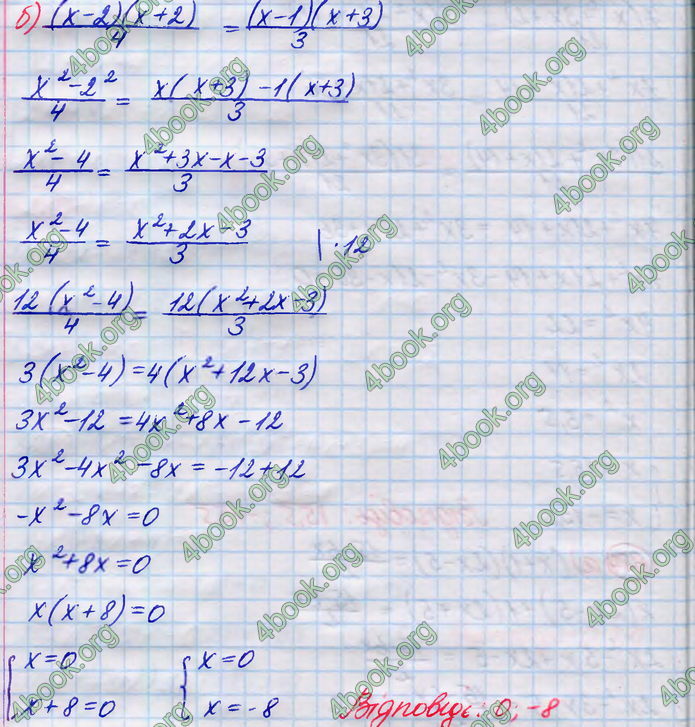 б) (x-2)(x+2)/4 = (x-1)(x+3)/3
x²-2²/4 = x(x+3)-1(x+3)/3
x²-4/4 = x²+3x-x-3/3
x²-4/4 = x²+2x-3/3 | ·12
12(x²-4)/4 = 12(x²+2x-3)/3
3(x²-4)=4(x²+12x-3)
3x²-12=4x²+8x-12
3x²-4x²-8x=-12+12
-x²-8x=0
x²+8x=0
x(x+8)=0
{ x=0 { x=0
x+8=0 x=-8 Відповідь: 0; -8
4book.org